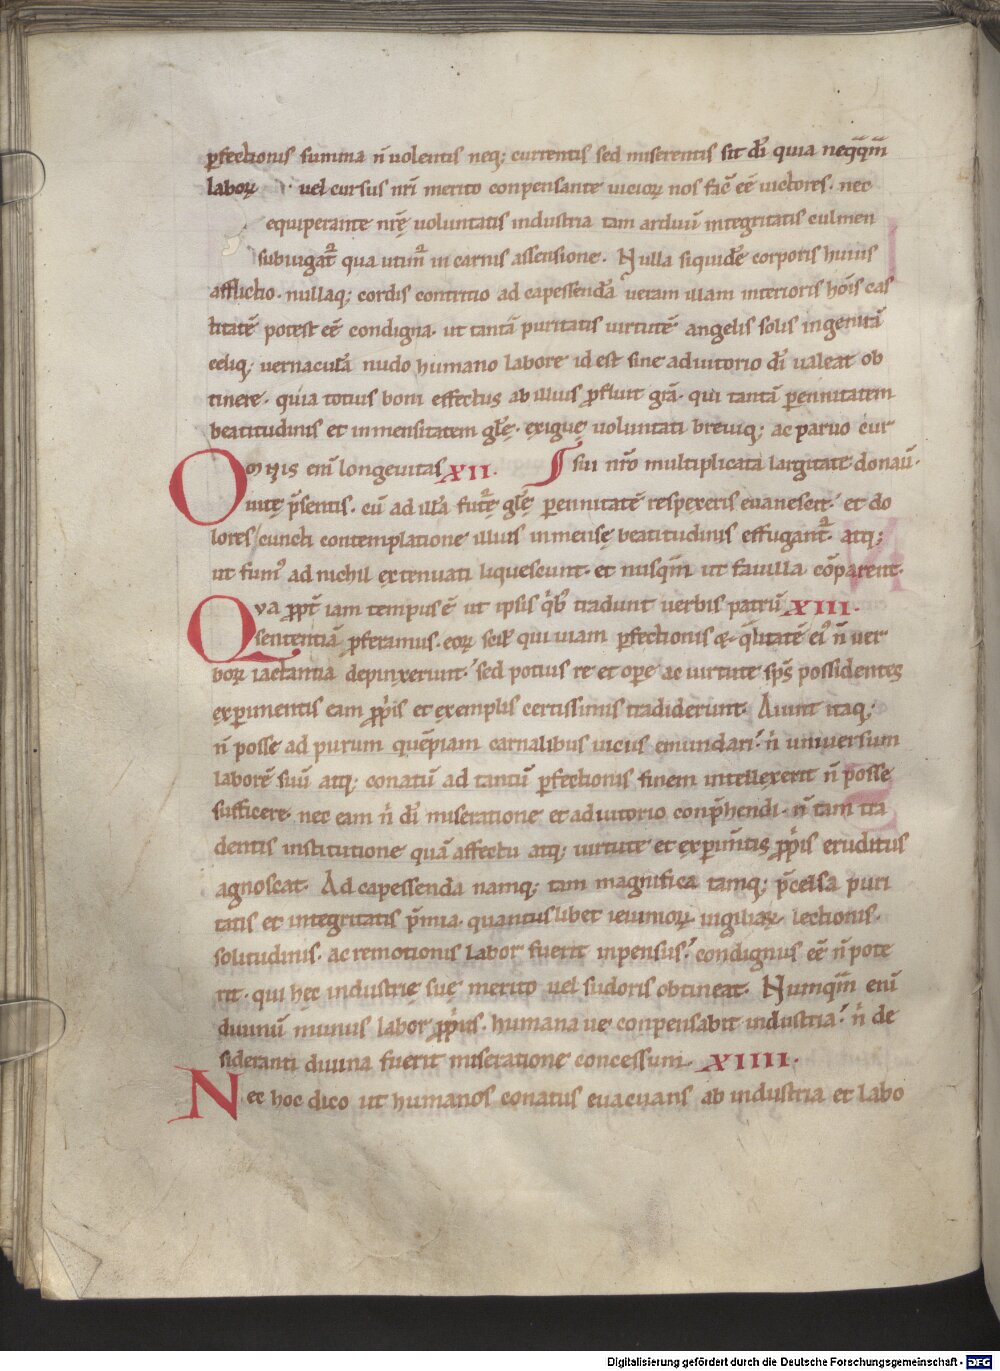 p̲fectionis summa n̄ uolentis neq; currentis sed miserentis sit dī quia neq̄q̄m̄
laborꝝ · uel cursus nr̄i merito conpensante uiciorꝝ nos fac̄ eē uictores · nec
equiperante nr̄ę uoluntatis industria tam arduū integritatis culmen
subiugat᷑ qua utim᷑ in carnis assensione · Nulla siquidē corporis huius
afflictio · nullaq; cordis contritio ad capessendā ueram illam interioris hōis cas
titatē potest eē condigna · ut tantā puritatis uirtutē angelis solis ingenitā
celiq; uernaculā nudo humano labore id est sine adiutorio dī ualeat ob
tinere · quia totius boni effectus ab illius p̲fluit grā · qui tantā p̲ennitatem
beatitudinis et inmensitatem gl̄ę · exiguę uoluntati breuiq; ac paruo cur
Omnis eni longeuitas XII. sui nr̄o multiplicata largitate donauˉ.
uitę p̄sentis · cū ad illā fut᷑ę gl̄ę p̲ennitatē respexeris euanescit · et do
lores cuncti contemplatione illius inmensę beatitudinis effugant᷑ · atq;
ut fum᷒ ad nichil extenuati liquescunt · et nusq̄m ut fauilla cōparent ·
Qva pp̄t̄ iam tempus ē ut ipsis q̄b᷒ tradunt uerbis patrū XIII.
sententiā p̲feramus · eorꝝ scil̄ qui uiam p̲fectionis et q̄litatē ei᷒ n̄ uer
borꝝ iactantia depinxerunt · sed potius re et ope ac uirtute sp̄s possidentes
experimentis eam pp̄ris et exemplis certissimis tradiderunt · Aiunt itaq;
n̄ posse ad purum quēpiam carnalibus uiciis emundari · nˡ uniuersum
laborē suū atq; conatū ad tantū p̲fectionis finem intellexerit n̄ posse
sufficere · nec eam nˡ dī miseratione et adiutorio conp̄hendi · n̄ tam tra
dentis institutione quā affectu atq; uirtute et experim̄tis pp̄ris eruditus
agnoscat · Ad capessenda namq; tam magnifica tamq; p̄celsa puri
tatis et integritatis p̄mia · quantuslibet ieiuniorꝝ uigiliarꝝ · lectionis ·
solitudinis · ac remotionis labor fuerit inpensus · condignus eē n̄ pote
rit · qui hęc industrię suę merito uel sudoris obtineat · Numq̄m eni
diuinū munus labor pp̄rius · humana ue conpensabit industria · nˡ de
sideranti diuina fuerit miseratione concessum · XIIII.
Nec hoc dico ut humanos conatus euacuans ab industria et labo
Digitalisierung gefördert durch die Deutsche Forschungsgemeinschaft - DFG